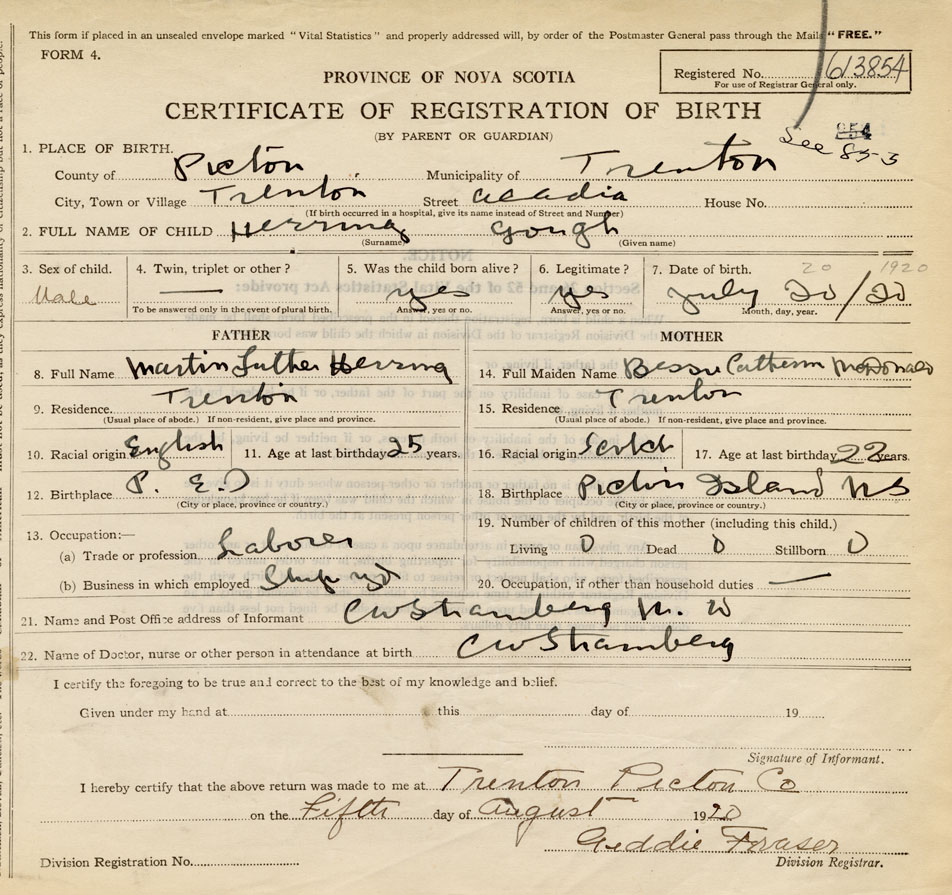 This form if placed in an unsealed envelope marked "Vital Statistics" and properly addressed will, by order of the Postmaster General pass through the Mails "FREE."
FORM 4.
Registered No. 613854
For use of Registrar General only.
PROVINCE OF NOVA SCOTIA
CERTIFICATE OF REGISTRATION OF BIRTH
(BY PARENT OR GUARDIAN)
854
See 853
1. PLACE OF BIRTH.
County of Picton Municipality of Trenton
City, Town or Village Trenton Street Acadia House No.
(If birth occurred in a hospital, give its name instead of Street and Number)
2. FULL NAME OF CHILD Herring Gough
(Surname) (Given name)
3. Sex of child. 4. Twin, triplet or other? 5. Was the child born alive? 6. Legitimate? 7. Date of birth. 20 1920
Male — yes yes July 20/20
To be answered only in the event of plural birth. Answer, yes or no. Answer, yes or no. Month, day, year.
FATHER MOTHER
8. Full Name Martin Luther Herring 14. Full Maiden Name Bessie Catherin McDonald
9. Residence. Trenton 15. Residence Trenton
(Usual place of abode.) If non-resident, give place and province. (Usual place of abode.) If non-resident, give place and province.
10. Racial origin English 11. Age at last birthday 25 years. 16. Racial origin Scotch 17. Age at last birthday 22 years.
12. Birthplace P. E. I 18. Birthplace Picton Island NS
(City or place, province or country.) (City or place, province or country.)
13. Occupation:— 19. Number of children of this mother (including this child.)
(a) Trade or profession Laborer Living 0 Dead 0 Stillborn 0
(b) Business in which employed Ship yd 20. Occupation, if other than household duties —
21. Name and Post Office address of Informant CW Stramberg M. D
22. Name of Doctor, nurse or other person in attendance at birth CW Stramberg
I certify the foregoing to be true and correct to the best of my knowledge and belief.
Given under my hand at this day of 19
Signature of Informant.
I hereby certify that the above return was made to me at Trenton Picton Co
on the Fifth day of August 1920
Geddie Fraser
Division Registration No. Division Registrar.